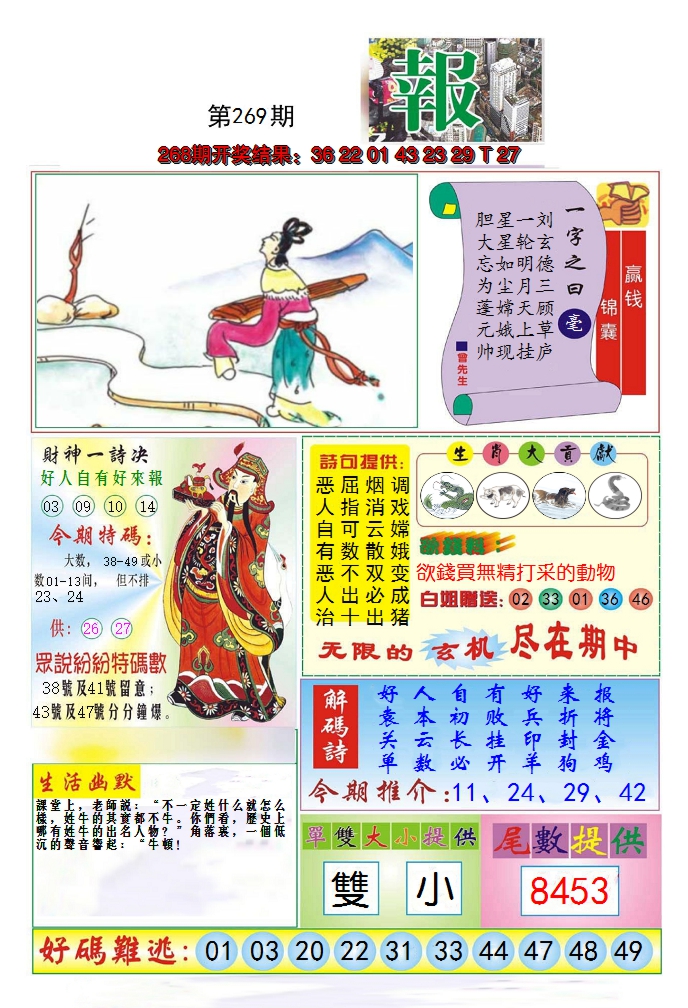 報
第269期
268期开奖结果：36 22 01 43 23 29 T 27
一字之曰
毫
刘玄德三顾草庐
一轮明月天上挂
星星如尘嫦娥现
胆大忘为蓬元帅
曾先生
赢钱
锦囊
財神一詩决
好人自有好來報
03 09 10 14
今期特碼：
大数，38-49或小
数01-13间，但不排
23、24
供：26 27
眾說紛紛特碼數
38號及41號留意；
43號及47號分分鐘爆。
詩句提供:
调戏嫦娥变成猪
烟消云散双必出
屈指可数不出十
恶人自有恶人治
生肖大貢獻
欲錢買無精打采的動物
白姐贈送: 02 33 01 36 46
无限的玄机尽在期中
解碼詩
好人自有好来报
袁本初败兵折将
关云长挂印封金
单数必开羊狗鸡
今期推介:11、24、29、42
生活幽默
課堂上，老師説：“不一定姓什么就怎么
樣，姓牛的其實都不牛。你們看，歷史上
哪有姓牛的出名人物？”角落裏，一個低
沉的聲音響起：“牛頓！
單雙大小提供
雙 小
尾數提供
8453
好碼難逃: 01 03 20 22 31 33 44 47 48 49